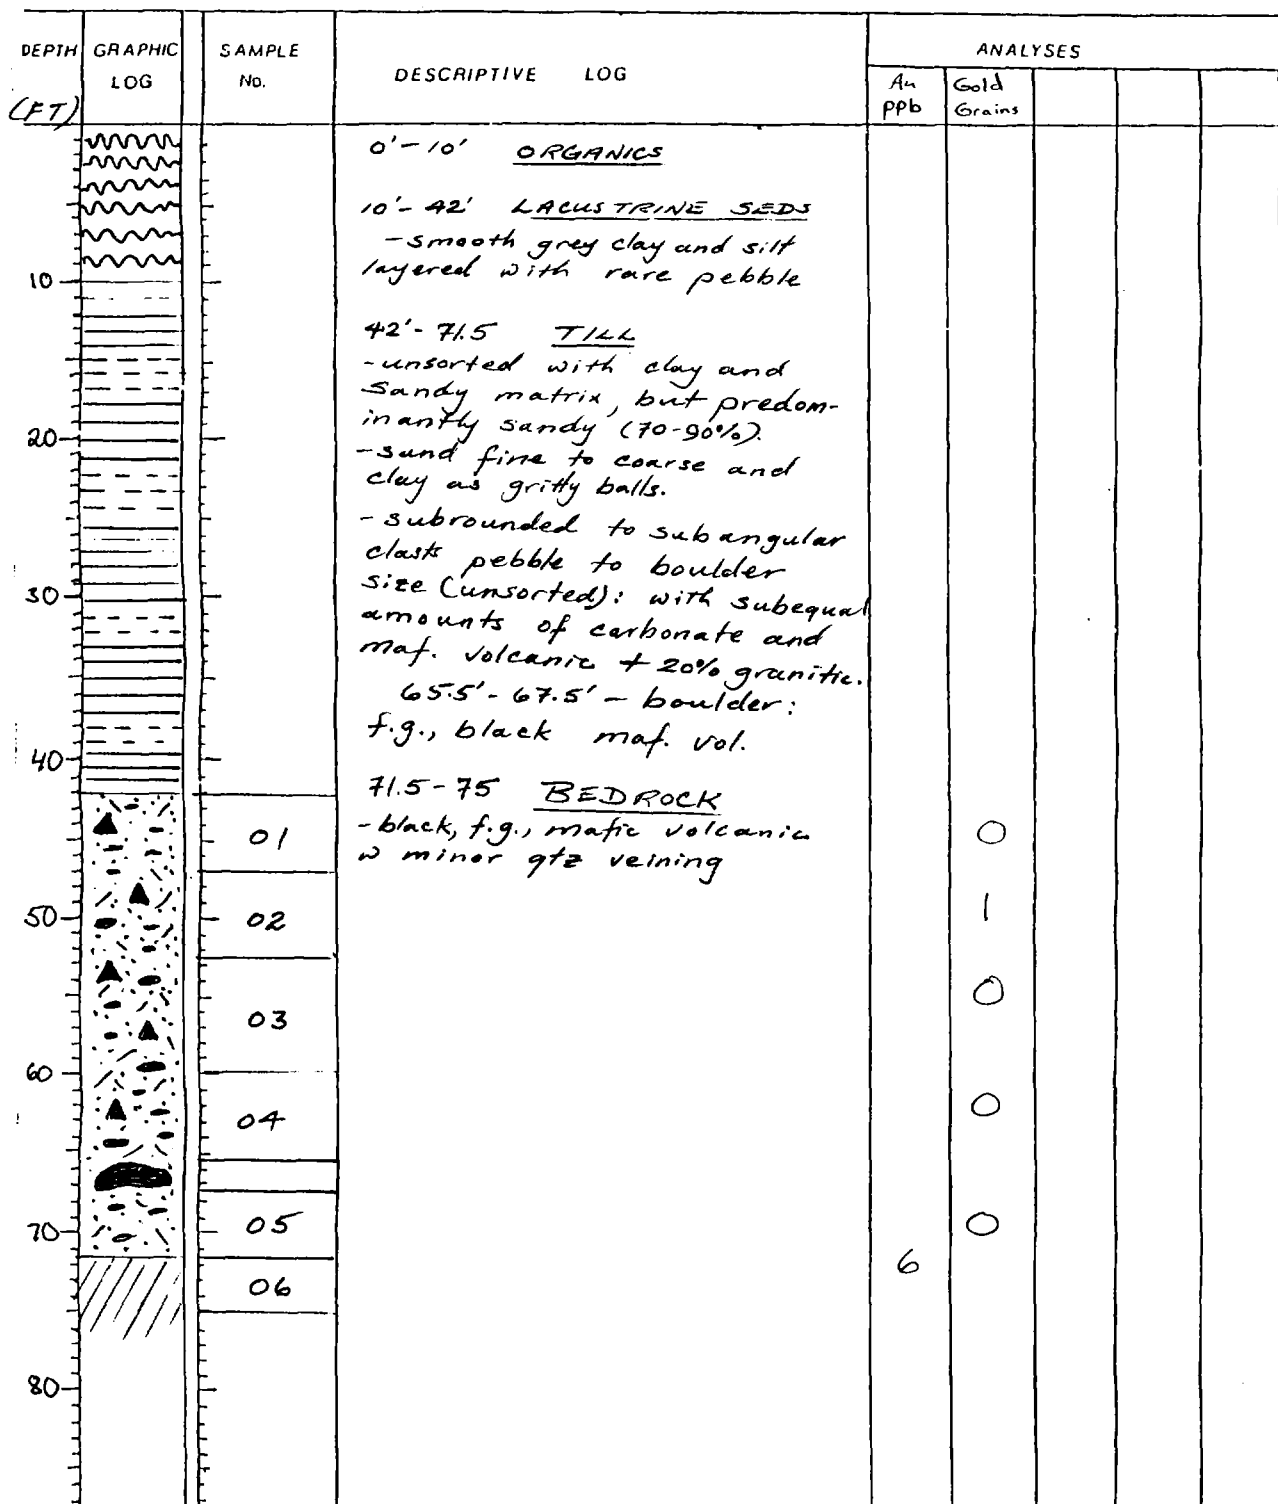 DEPTH GRAPHIC SAMPLE ANALYSES
LOG No. DESCRIPTIVE LOG
(FT) Au Gold
ppb Grains
0'-10' ORGANICS
10'-42' LACUSTRINE SEDS
-smooth grey clay and silt
layered with rare pebble
10
42'-71.5 TILL
-unsorted with clay and
sandy matrix, but predom-
inantly sandy (70-90%).
20
-sand fine to coarse and
clay as gritty balls.
-subrounded to subangular
clasts pebble to boulder
size (unsorted): with subequal
30
amounts of carbonate and
maf. volcanic + 20% granitic.
65.5'-67.5' - boulder:
f.g., black maf. vol.
40
71.5-75 BEDROCK
-black, f.g., mafic volcanic
w minor qtz veining
01 0
50 02 1
03 0
60
04 0
70 05 0
06 6
80